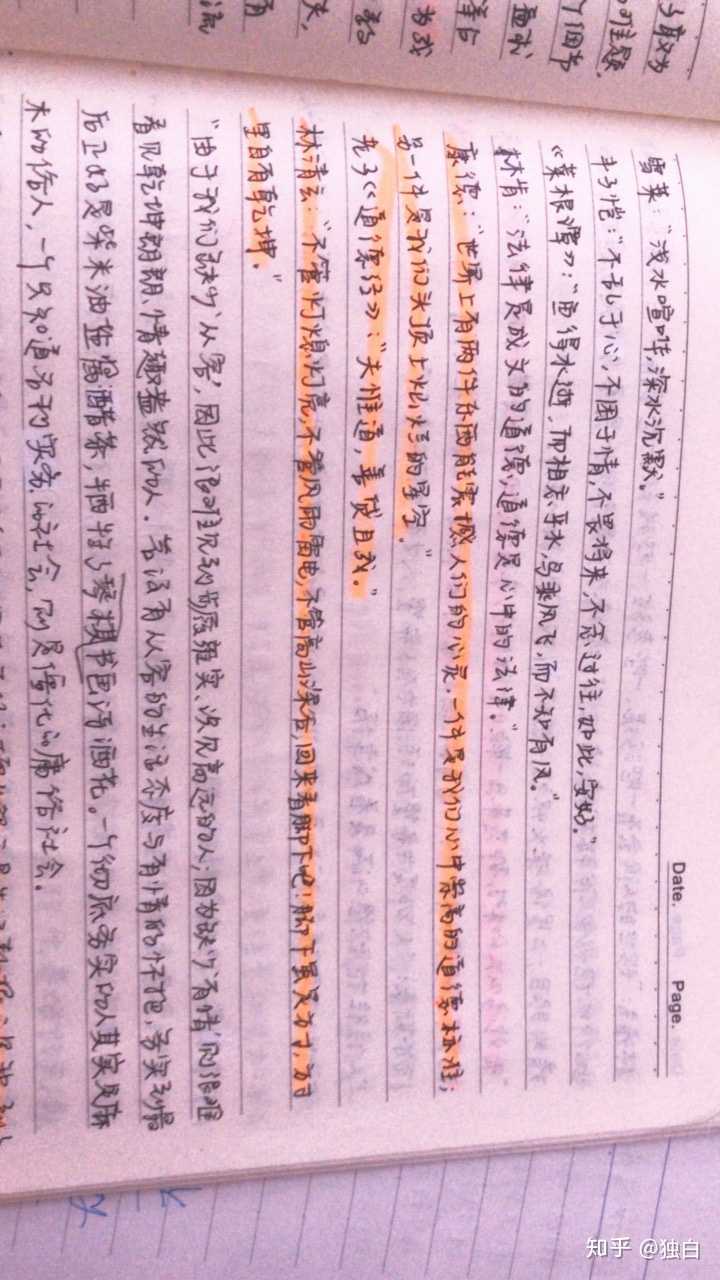 Date. Page.
雪莱：“浅水喧哗，深水沉默。”
丰子恺：“不乱于心，不困于情，不畏将来，不念过往，如此，安好。”
《菜根谭》：“鱼得水逝，而相忘乎水，鸟乘风飞，而不知有风。”
林肯：“法律是成文的道德，道德是心中的法律。”
康德：“世界上有两件东西能震撼人们的心灵，一件是我们心中崇高的道德标准；
另一件是我们头顶上灿烂的星空。”
老子《道德经》：“夫唯道，善贷且成。”
林清玄：“不管灯熄灯亮，不管风雨雷电，不管高山深谷，回来看脚下吧！脚下虽是方寸，方寸
里自有乾坤。”
“由于我们缺少‘从容’，因此很难见到步履雍实、谈见高远的人；因为缺少‘有情’，
看见乾坤朗朗、情趣盎然的人。若没有从容的生活态度与有情的怀抱，务实到最
后正好是柴米油盐酱醋茶，牺牲了琴棋书画诗酒花。一个彻底务实的人其实是麻
木的俗人，一个只知道名利实务的社会，则是僵化的庸俗社会。
知乎 @独白